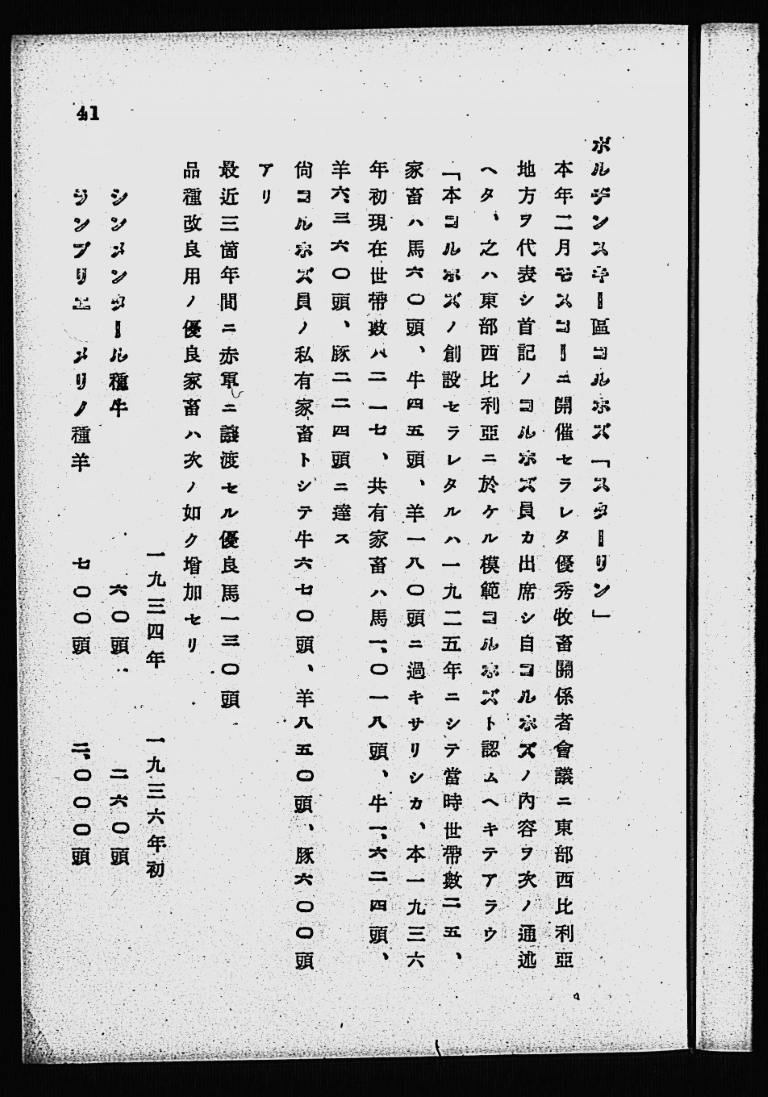 41
ボルヂンスキー區コルホズ「スターリン」
本年二月モスコーニ開催セラレタ優秀牧畜關係者會議ニ東部西比利亞
地方ヲ代表シ首記ノコルホズ員カ出席シ自コルホズノ內容ヲ次ノ通述
ヘタ、之ハ東部西比利亞ニ於ケル模範コルホズト認ムヘキテアラウ
「本コルホズノ創設セラレタルハ一九二五年ニシテ當時世帶數二五、
家畜ハ馬六〇頭、牛四五頭、羊一八〇頭ニ過キサリシカ、本一九三六
年初現在世帶數ハ二一七、共有家畜ハ馬一、〇一八頭、牛一、六二四頭、
羊六、三六〇頭、豚二二四頭ニ達ス
尙コルホズ員ノ私有家畜トシテ牛六七〇頭、羊八五〇頭、豚六〇〇頭
アリ
最近三箇年間ニ赤軍ニ讓渡セル優良馬一三〇頭
品種改良用ノ優良家畜ハ次ノ如ク增加セリ
一九三四年 一九三六年初
シンメンタール種牛 六〇頭 二六〇頭
ランブリエ メリノ種羊 七〇〇頭 二、〇〇〇頭